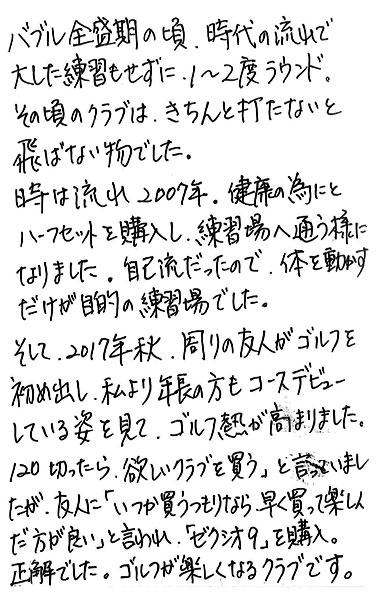 バブル全盛期の頃、時代の流れで
大した練習もせずに、1～2度ラウンド。
その頃のクラブは、きちんと打たないと
飛ばない物でした。
時は流れ2007年。健康の為にと
ハーフセットを購入し、練習場へ通う様に
なりました。自己流だったので、体を動かす
だけが目的の練習場でした。
そして、2017年秋、周りの友人がゴルフを
初め出し、私より年長の方もコースデビュー
している姿を見て、ゴルフ熱が高まりました。
120切ったら、欲しいクラブを買う」と言っていまし
たが、友人に「いつか買うつもりなら、早く買って楽しん
だ方が良い」と言われ、「ゼクシオ9」を購入。
正解でした。ゴルフが楽しくなるクラブです。